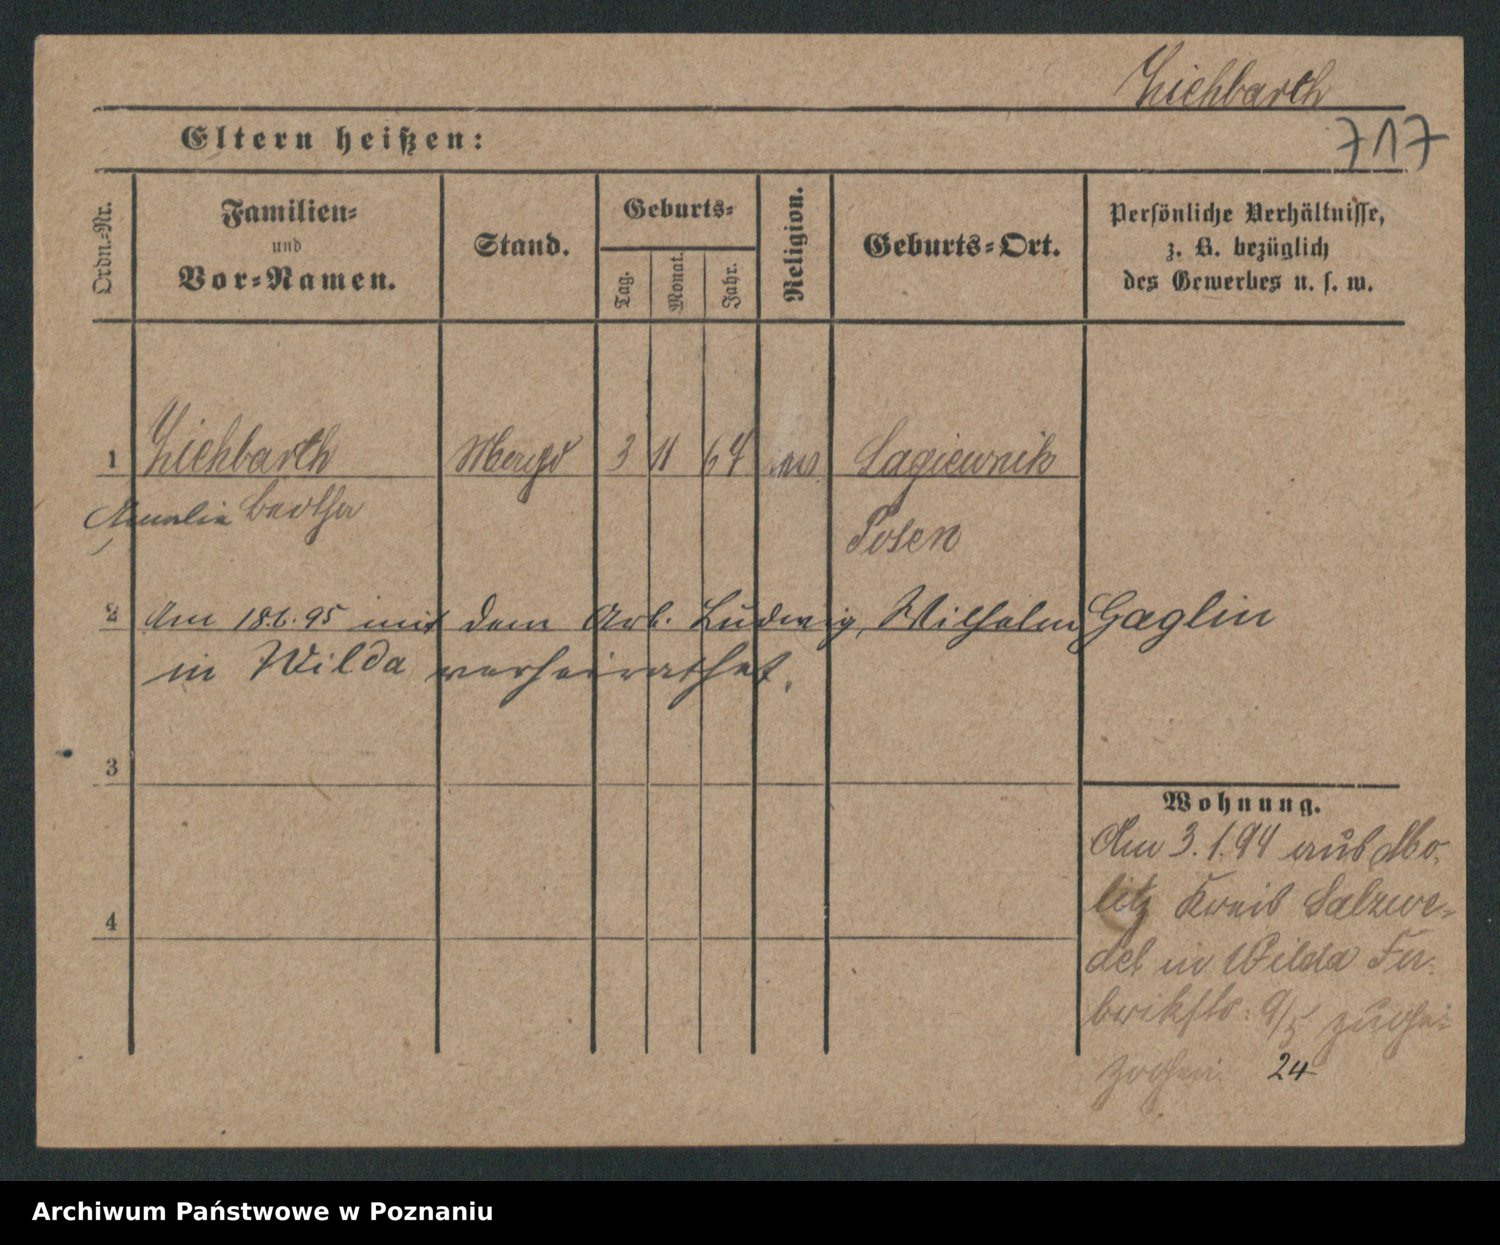 Ziehbarth
717
Eltern heißen:
Ordn.-Nr.
Familien-
und
Vor-Namen.
Stand.
Geburts-
Tag.
Monat.
Jahr.
Religion.
Geburts-Ort.
Persönliche Verhältnisse,
z. B. bezüglich
des Gewerbes u. s. w.
1 Ziehbarth Magd 3 11 67 ev. Lagiewnik
Amalie Bertha
Posen
2 Am 18.6.95 mit dem Arb. Ludwig, Wilhelm Gaglin
in Wilda verheirathet.
3
4
Wohnung.
Am 3.1.94 aus
litz Kreis Salzwe-
del in Wilda Fa-
brikstr. 9/5
24
Archiwum Państwowe w Poznaniu